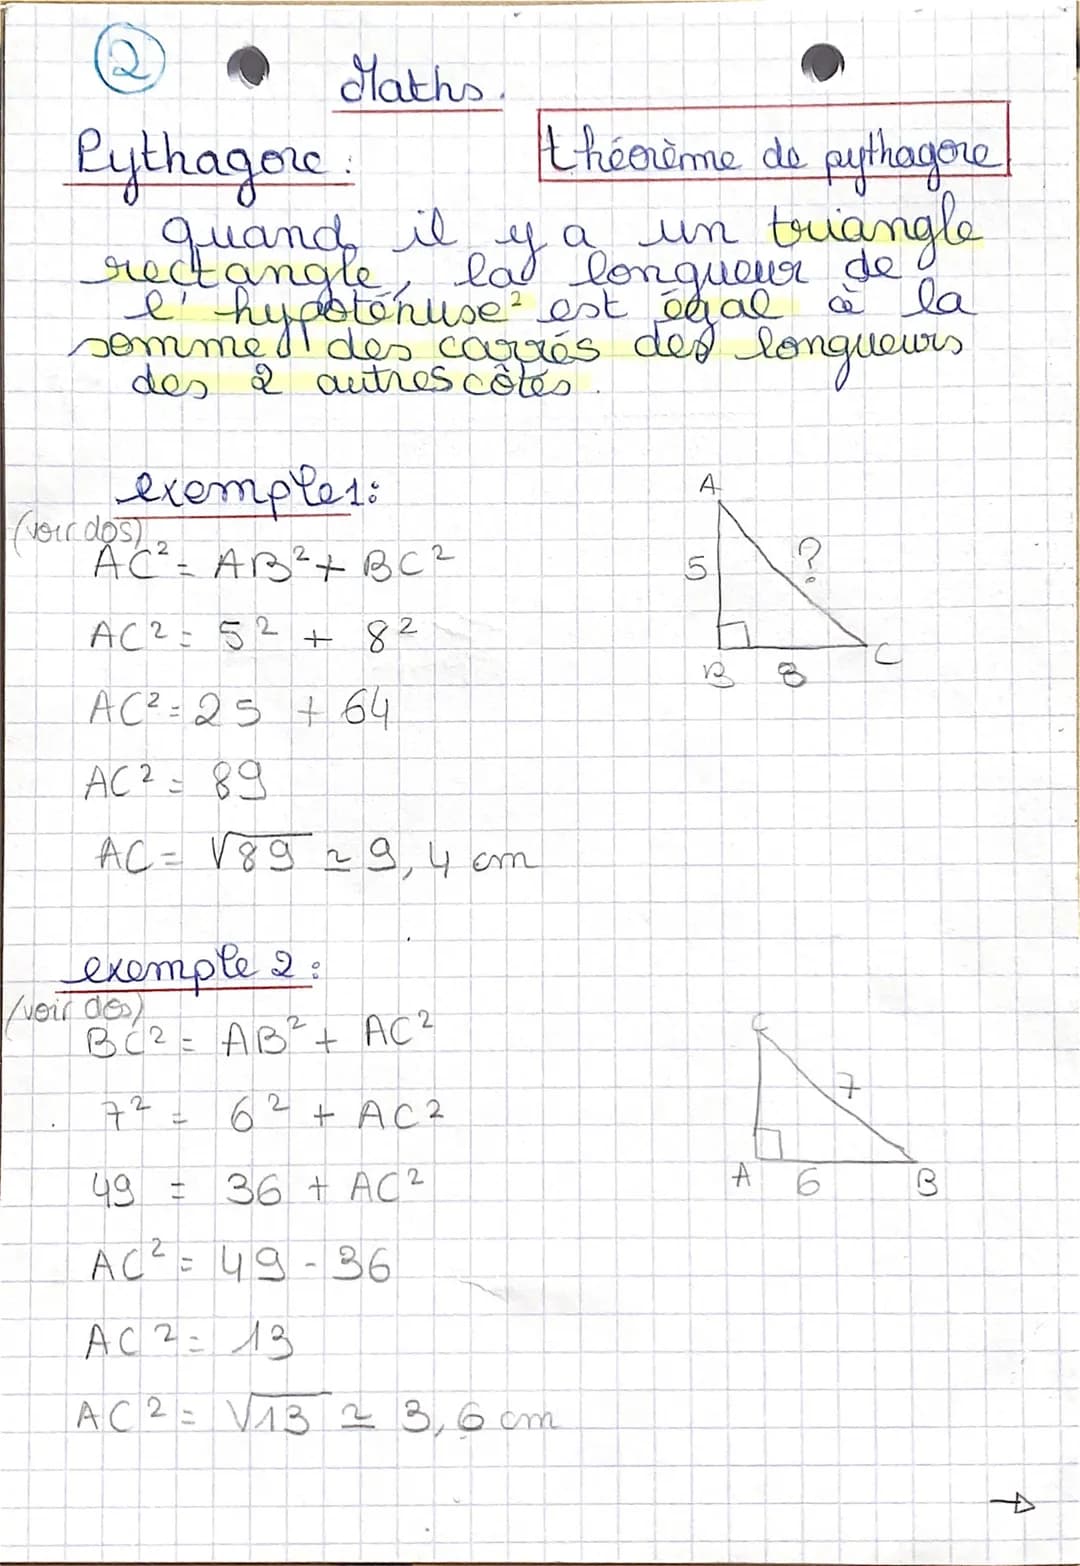 2
Maths.
Pythagore :
théorème de pythagore
quand il y a un triangle
rectangle, la longueur de
l'hypoténuse² est égal à la
somme des carrés des longueurs
des 2 autres côtés.
exemple 1:
(voir dos)
AC² = AB² + BC²
AC² = 5² + 8²
AC² = 25 + 64
AC² = 89
AC = √89 ≃ 9,4 cm
A
5
?
B
8
C
exemple 2 :
(voir dos)
BC² = AB² + AC²
7² = 6² + AC²
49 = 36 + AC²
AC² = 49 - 36
AC² = 13
AC² = √13 ≃ 3,6 cm
C
7
A
6
B